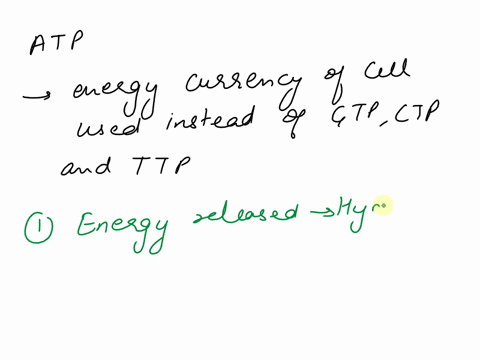 ATP
→ energy currency of cell
used instead of GTP, CTP
and TTP
① Energy released → Hy